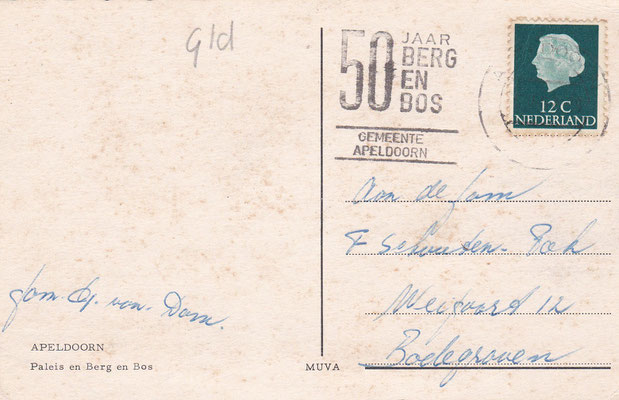 gld
50 JAAR
BERG
EN
BOS
GEMEENTE
APELDOORN
12 C
NEDERLAND
Aan de fam
F Schouten-Bok
12
Bodegraven
fam. G. van. Dam.
APELDOORN
Paleis en Berg en Bos
MUVA